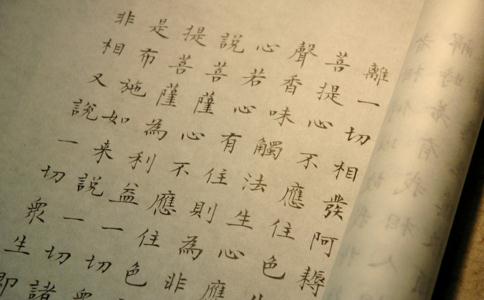 離一切相發阿耨
菩提心不應住色生
聲香味觸法生心應
心若心有住則為非
說菩薩心不應住色
提菩薩為利益一切眾
是布施如來說一切諸
非相又說一切眾生即